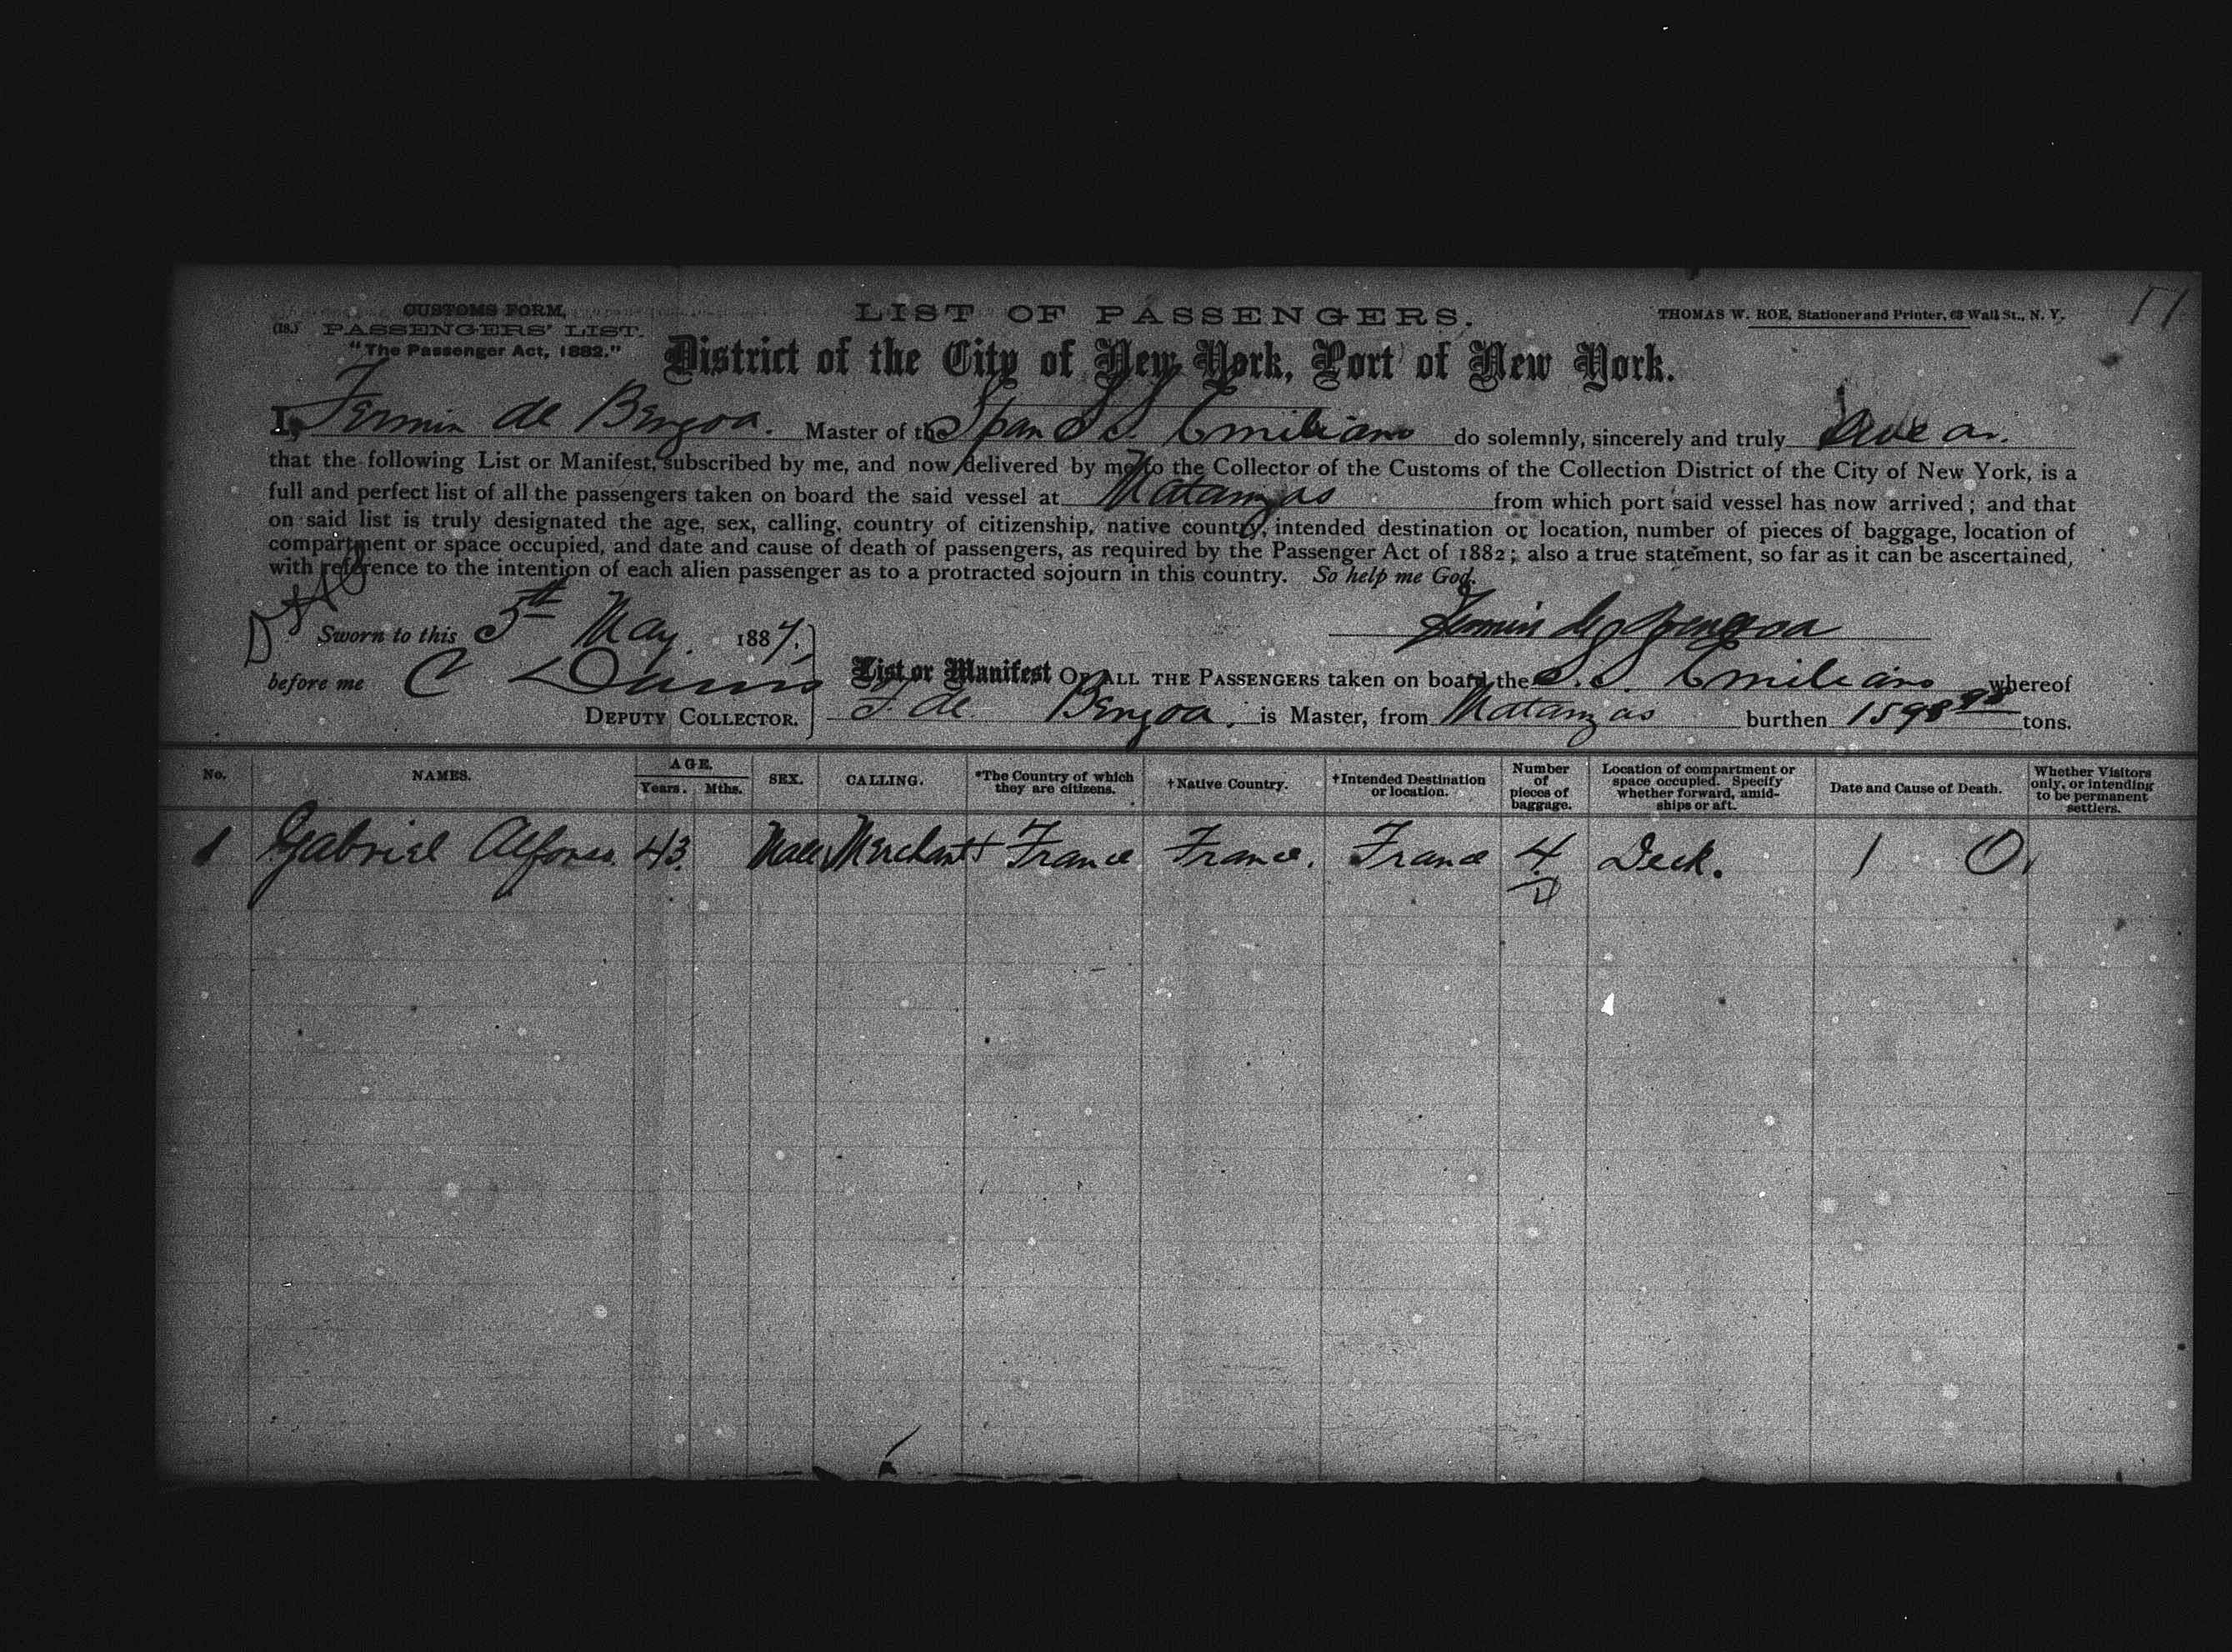 CUSTOMS FORM,
(18.) PASSENGERS' LIST.
"The Passenger Act, 1882."
LIST OF PASSENGERS.
THOMAS W. ROE, Stationer and Printer, 63 Wall St., N. Y.
District of the City of New York, Port of New York.
I, Fermin de Bengoa. Master of the Span S.S. Emiliano do solemnly, sincerely and truly
that the following List or Manifest, subscribed by me, and now delivered by me to the Collector of the Customs of the Collection District of the City of New York, is a
full and perfect list of all the passengers taken on board the said vessel at Matanzas from which port said vessel has now arrived; and that
on said list is truly designated the age, sex, calling, country of citizenship, native country, intended destination or location, number of pieces of baggage, location of
compartment or space occupied, and date and cause of death of passengers, as required by the Passenger Act of 1882; also a true statement, so far as it can be ascertained,
with reference to the intention of each alien passenger as to a protracted sojourn in this country. So help me God.
Sworn to this 5th May 1887.
Fermin de Bengoa
before me C
DEPUTY COLLECTOR.
List or Manifest OF ALL THE PASSENGERS taken on board the S.S. Emiliano whereof
F. de Bengoa. is Master, from Matanzas burthen 1598 98 tons.
No. NAMES. AGE. Years. Mths. SEX. CALLING. *The Country of which they are citizens. †Native Country. †Intended Destination or location. Number of pieces of baggage. Location of compartment or space occupied. Specify whether forward, amidships or aft. Date and Cause of Death. Whether Visitors only, or intending to be permanent settlers.
1 Gabriel Alfonso 43 Male Merchant France France. France 4 Deck. 1 0